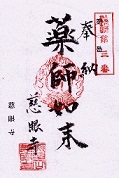 第三番
奉納
薬師如来
慈眼寺
慈眼寺